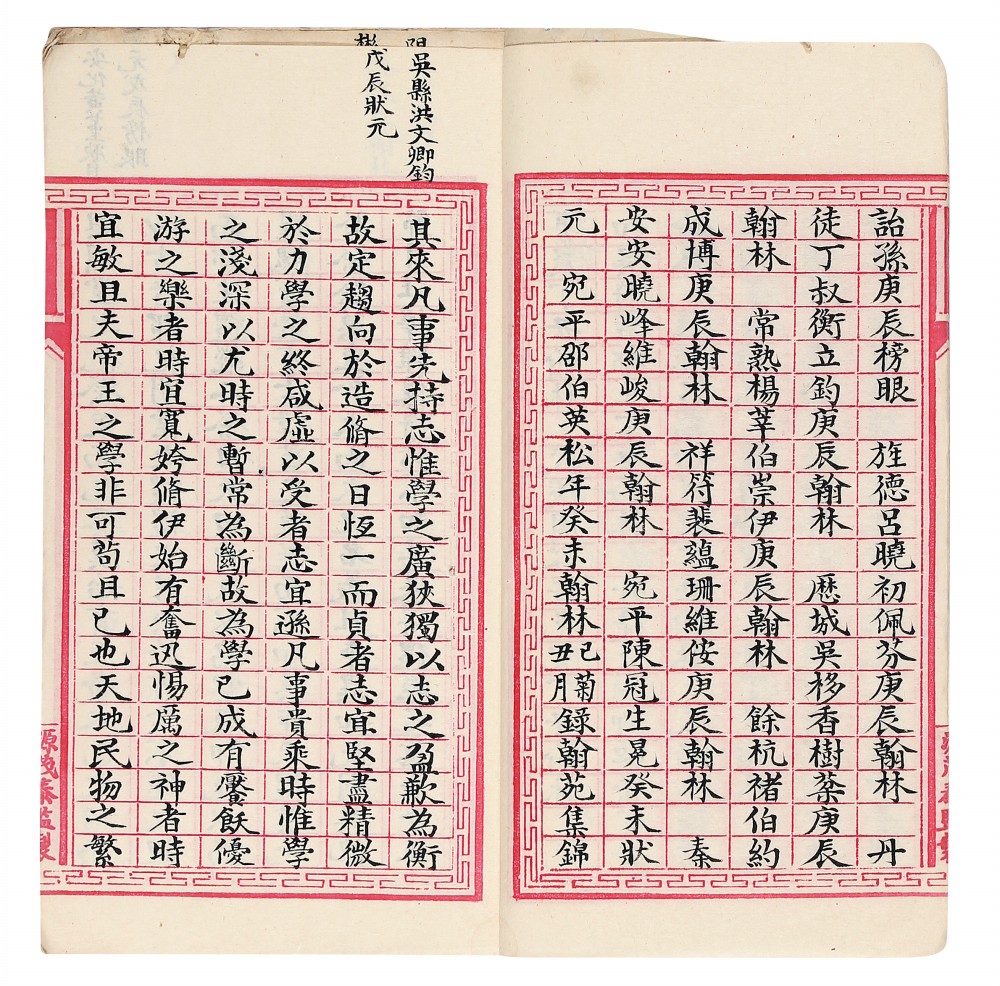 詒孫庚辰榜眼 旌德呂曉初佩芬庚辰翰林 丹
徒丁叔衡立鈞庚辰翰林 歷城吳移香樹棻庚辰
翰林 常熟楊莘伯崇伊庚辰翰林 餘杭禇伯約
成博庚辰翰林 祥符裴蘊珊維侒庚辰翰林 秦
安安曉峰維峻庚辰翰林 宛平陳冠生冕癸未狀
元 宛平邵伯英松年癸未翰林 己丑菊月錄翰苑集錦
吳縣洪文卿鈞
戊辰狀元
其來凡事先持志惟學之廣狹獨以志之盈歉為衡
故定趨向於造脩之日恆一而貞者志宜堅盡精微
於力學之終咸虛以受者志宜遜凡事貴乘時惟學
之淺深以尤時之暫常為斷故為學已成有饜飫優
游之樂者時宜寬姱脩伊始有奮迅惕厲之神者時
宜敏且夫帝王之學非可茍且已也天地民物之繁
源茂泰監製